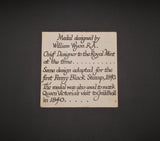 Medal designed by
William Wyon R.A.
Chief Designer to the Royal Mint
at the time..........
Same design adopted for the
first Penny Black Stamp, 1840.
The medal was also used to mark
Queen Victoria's visit to Guildhall
in 1840....